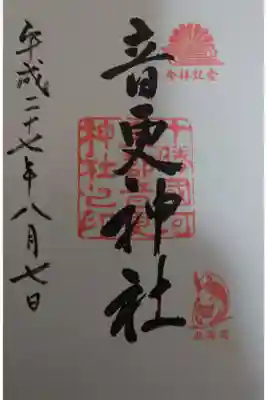 参拝記念
音更神社
十勝國河
東郡音更
神社之印
平成二十七年八月七日